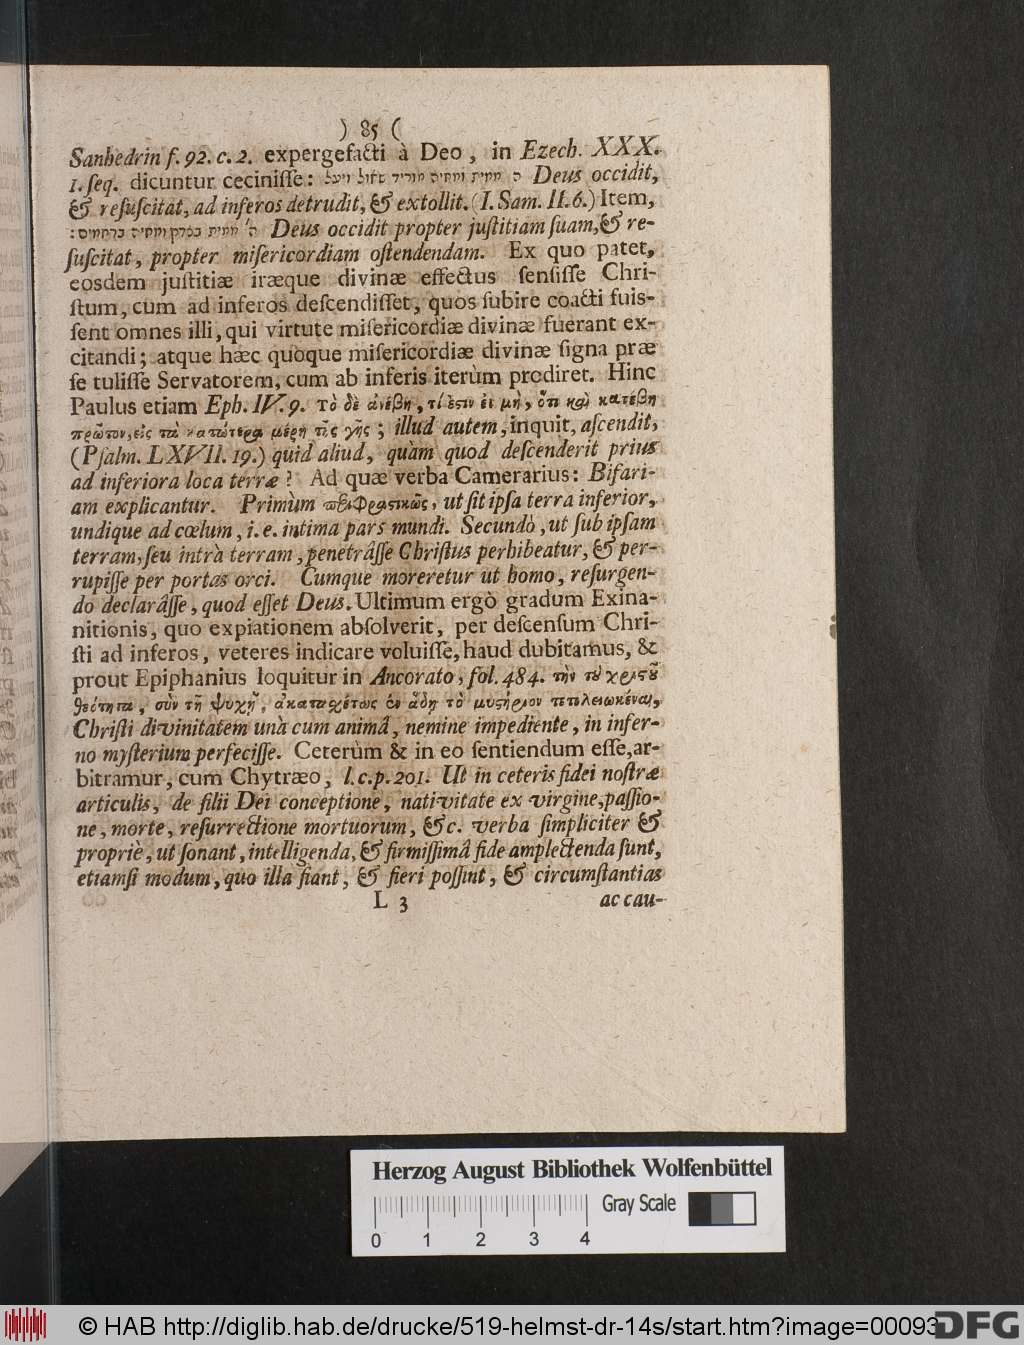 ) 85 (
Sanhedrin f. 92. c. 2. expergefacti à Deo, in Ezech. XXX.
1. ſeq. dicuntur ceciniſſe: ה ממית ומחיה מוריד שאול ויעל Deus occidit,
& reſuſcitat, ad inferos detrudit, & extollit. (I. Sam. II. 6.) Item,
ה' ממית בצדק ומחיה ברחמים: Deus occidit propter juſtitiam ſuam, & re-
ſuſcitat, propter miſericordiam oſtendendam. Ex quo patet,
eosdem juſtitiæ iræque divinæ effectus ſenſiſſe Chri-
ſtum, cum ad inferos deſcendiſſet, quos ſubire coacti fuis-
ſent omnes illi, qui virtute miſericordiæ divinæ fuerant ex-
citandi; atque hæc quoque miſericordiæ divinæ ſigna præ
ſe tuliſſe Servatorem, cum ab inferis iterùm prodiret. Hinc
Paulus etiam Eph. IV. 9. τὸ δὲ ἀνέβη, τί ἐστιν εἰ μὴ, ὅτι καὶ κατέβη
πρῶτον, εἰς τὰ κατώτερα μέρη τῆς γῆς; illud autem, inquit, aſcendit,
(Pſalm. LXVII. 19.) quid aliud, quàm quod deſcenderit prius
ad inferiora loca terræ? Ad quæ verba Camerarius: Bifari-
am explicantur. Primùm περιφραστικῶς, ut ſit ipſa terra inferior,
undique ad cœlum, i. e. intima pars mundi. Secundò, ut ſub ipſam
terram, ſeu intrà terram, penetrâſſe Chriſtus perhibeatur, & per-
rupiſſe per portas orci. Cumque moreretur ut homo, reſurgen-
do declarâſſe, quod eſſet Deus. Ultimum ergò gradum Exina-
nitionis, quo expiationem abſolverit, per deſcenſum Chri-
ſti ad inferos, veteres indicare voluiſſe, haud dubitamus, &
prout Epiphanius loquitur in Ancorato, fol. 484. τὴν τοῦ χριστοῦ
θεότητα, σὺν τῇ ψυχῇ, ἀκατασχέτως ἐν ἅδῃ τὸ μυστήριον τετελειωκέναι,
Chriſti divinitatem unà cum animâ, nemine impediente, in infer-
no myſterium perfeciſſe. Ceterùm & in eo ſentiendum eſſe, ar-
bitramur, cum Chytræo, l. c. p. 201. Ut in ceteris fidei noſtræ
articulis, de filii Dei conceptione, nativitate ex virgine, paſſio-
ne, morte, reſurrectione mortuorum, &c. verba ſimpliciter &
propriè, ut ſonant, intelligenda, & firmiſſimâ fide amplectenda ſunt,
etiamſi modum, quo illa fiant, & fieri poſſint, & circumſtantias
L 3 ac cau-
Herzog August Bibliothek Wolfenbüttel
Gray Scale
0 1 2 3 4
© HAB http://diglib.hab.de/drucke/519-helmst-dr-14s/start.htm?image=00093
DFG